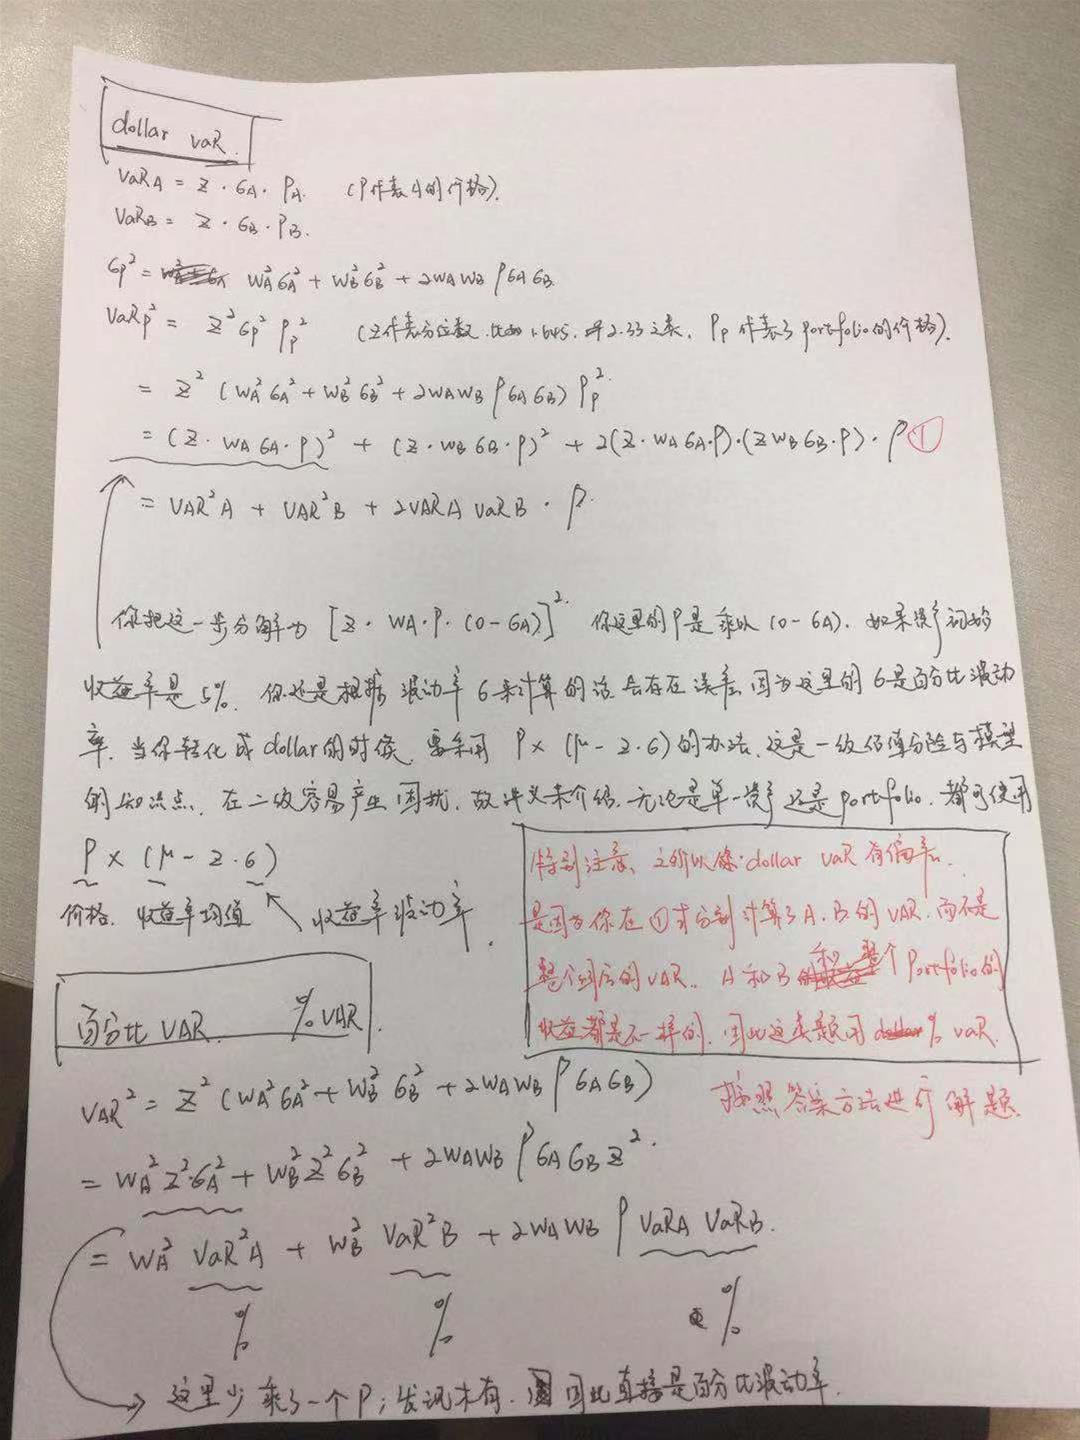 dollar VaR.
VaR_A = Z·σ_A·P_A. (P代表A的价格).
VaR_B = Z·σ_B·P_B.
σ_P² = W_A²σ_A² + W_B²σ_B² + 2W_A W_B ρσ_Aσ_B
VaR_P² = Z²σ_P² P_P² (Z代表分位数.比如1.645.2.33之类. P_P代表了portfolio的价格).
= Z²(W_A²σ_A² + W_B²σ_B² + 2W_A W_B ρσ_Aσ_B)P_P²
= (Z·W_Aσ_A·P)² + (Z·W_Bσ_B·P)² + 2(Z·W_Aσ_A·P)·(ZW_Bσ_B·P)·ρ ①
= VAR²A + VAR²B + 2VARA VaRB·ρ.
你把这一步分解为 [Z·W_A·P·(0-σ_A)]². 你这里的P是乘以(0-σ_A). 如果资产初始
收益率是5%. 你还是根据波动率σ来计算的话会存在误差.因为这里的σ是百分比波动
率. 当你转化成dollar的时候.要采用 P×(μ-Z·σ)的办法.这是一级估值与模型
的知识点. 在二级容易产生困扰.故讲义未介绍.无论是单一资产还是portfolio.都可使用
P×(μ-Z·σ)
价格. 收益率均值 收益率波动率.
特别注意. 之所以你dollar VaR有偏差.
是因为你在①式分别计算了A.B的VAR.而不是
整个组合的VAR. A和B和整个Portfolio的
收益都是不一样的.因此这类题用%VaR.
按照答案方法进行解题.
百分比VAR. %VAR.
VAR² = Z²(W_A²σ_A² + W_B²σ_B² + 2W_A W_B ρσ_Aσ_B)
= W_A²Z²σ_A² + W_B²Z²σ_B² + 2W_A W_B ρσ_Aσ_B Z².
= W_A² VaR²A + W_B² VaR²B + 2W_A W_B ρ VaRA VaRB.
% % %
这里少乘了一个P;发现木有. 因此直接是百分比波动率.